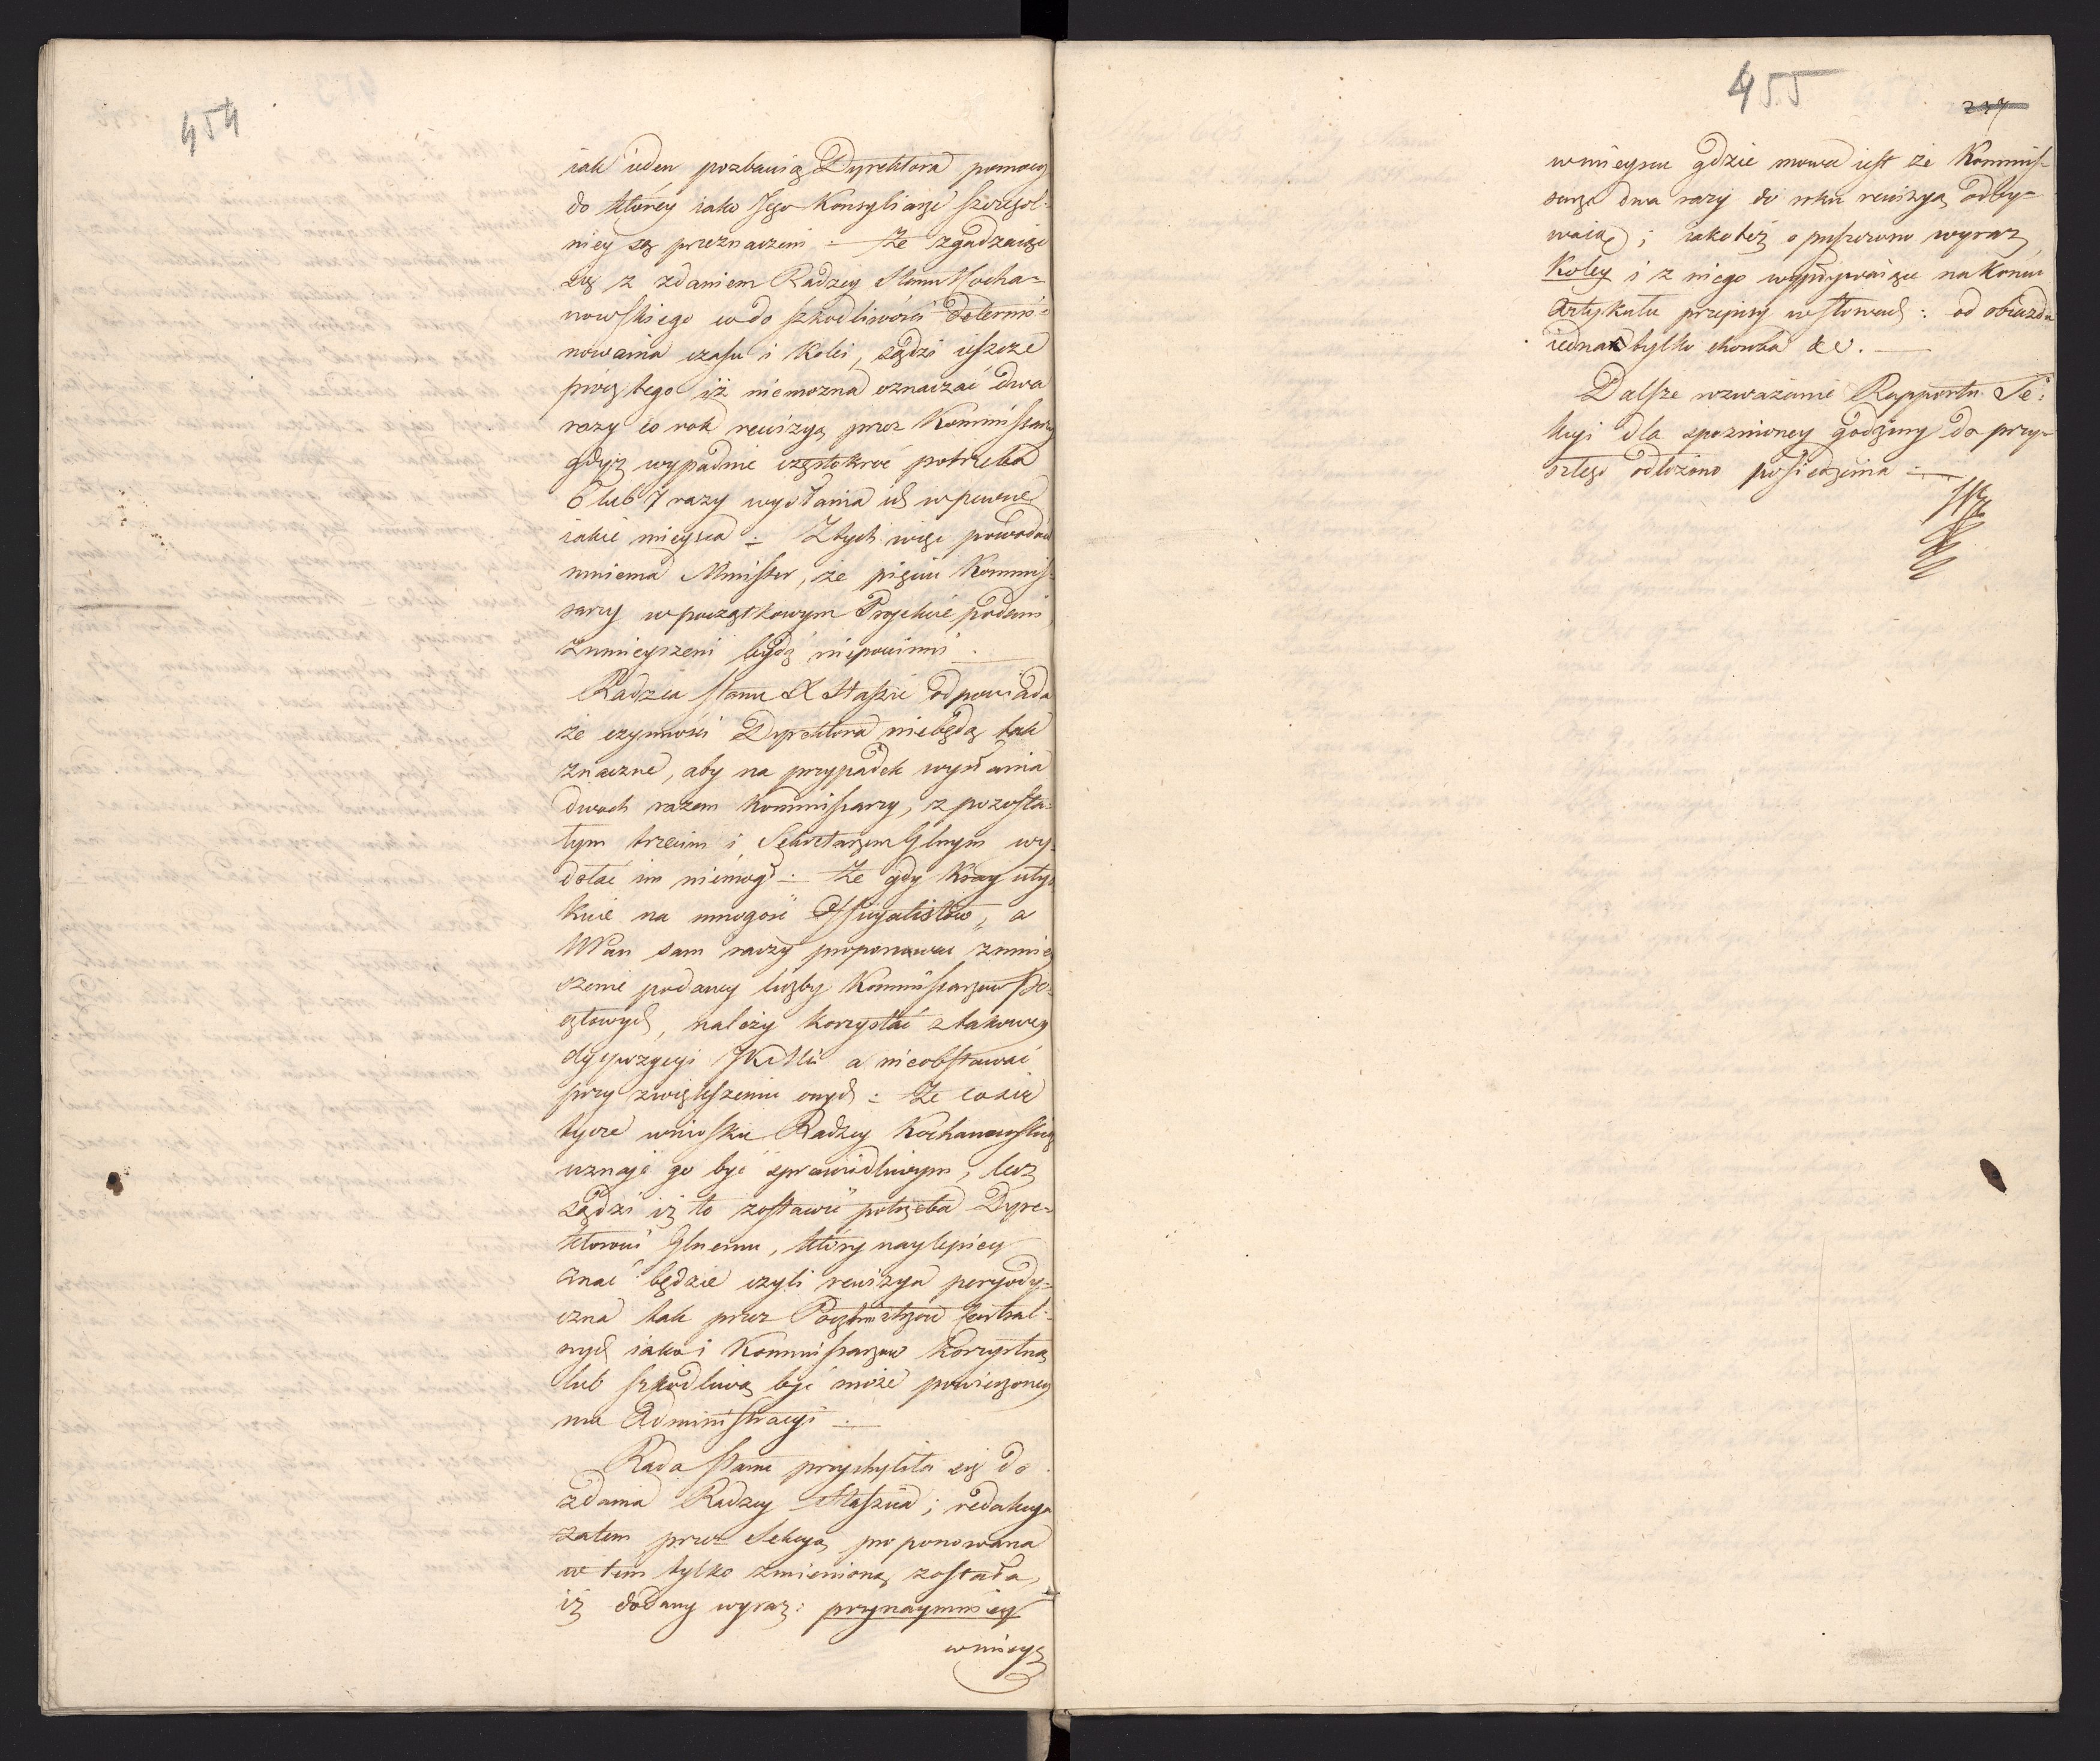 454
iak ieden pozbawią Dyrektora pomocy
do którey iako Jego Konsyliarze szczegól-
niey są przeznaczeni – Że zgadzaiąc
się z zdaniem Radzcy Stanu Kocha-
nowskiego co do szkodliwości determi-
nowania czasu i kolei, sądzi ieszcze
prócz tego iż niemożna oznaczać dwa
razy co rok rewizyą przez Kommissarzy
gdyż wypadnie częstokroć potrzeba
6 lub 7 razy wysłania ich w pewne
iakie mieysca – Z tych więc powodów
mniema Minister, że pięciu Kommis-
sarzy w początkowym Projekcie podani
zmnieyszeni bydź niepowinni.
Radzca Stanu X Staszic odpowiada
że czynności Dyrektora niebędą tak
znaczne, aby na przypadek wysłania
dwoch razem Kommissarzy, z pozosta-
łym trzecim i Sekretarzem Głnym wy-
dołać im niemógł – Że gdy Kray utys-
kuie na mnogość Officyalistów, a
NPan sam raczy proponować zmniey
szenie podaney liczby Kommissarzow Po-
cztowych, należy korzystać z takowey
dyspozycyi JKMci a nieobstawać
przy zwiększeniu onych – Że co się
tycze wniosku Radzcy Kochanowskieg
uznaje go być sprawiedliwym, lecz
sądzi iż to zostawić potrzeba Dyre-
ktorowi Głnemu, który naylepiey
znać będzie czyli rewizya peryody-
czna tak przez Pocztmistrzow Central-
nych iako i Kommissarzow korzystną
lub szkodliwą być może powierzoney
mu Administracyi –
Rada Stanu przychyliła się do
zdania Radzcy Staszica; redakcya
zatem przez Sekcyą proponowana
w tem tylko zmienioną została,
iż dodany wyraz: przynaymniey
w mieys
455
w mieyscu gdzie mowa iest że Kommis-
sarze dwa razy do roku rewizyą odby-
waią; iako też opuszczono wyraz
Koley i z niego wypływaiące na końcu
Artykułu przepisy w słowach: od obiazdu
iednak tylko &c. –
Dalsze rozważanie Rapportu Se-
kcyi dla spoznioney godziny do przy-
szłego odłożono posiedzenia –